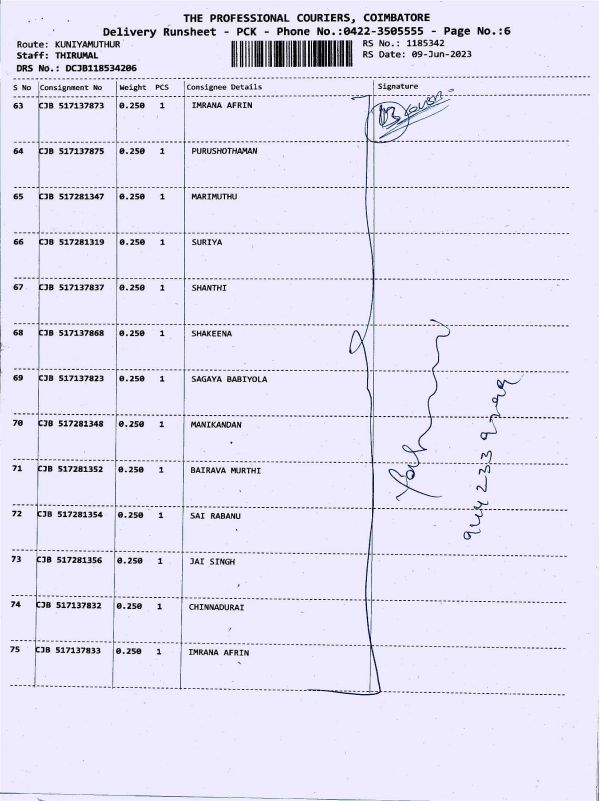 THE PROFESSIONAL COURIERS, COIMBATORE
Delivery Runsheet - PCK - Phone No.:0422-3505555 - Page No.:6
Route: KUNIYAMUTHUR
RS No.: 1185342
Staff: THIRUMAL
RS Date: 09-Jun-2023
DRS No.: DCJB118534206
S No Consignment No Weight PCS Consignee Details Signature
63 CJB 517137873 0.250 1 IMRANA AFRIN
64 CJB 517137875 0.250 1 PURUSHOTHAMAN
65 CJB 517281347 0.250 1 MARIMUTHU
66 CJB 517281319 0.250 1 SURIYA
67 CJB 517137837 0.250 1 SHANTHI
68 CJB 517137868 0.250 1 SHAKEENA
69 CJB 517137823 0.250 1 SAGAYA BABIYOLA
70 CJB 517281348 0.250 1 MANIKANDAN
71 CJB 517281352 0.250 1 BAIRAVA MURTHI
72 CJB 517281354 0.250 1 SAI RABANU
73 CJB 517281356 0.250 1 JAI SINGH
74 CJB 517137832 0.250 1 CHINNADURAI
75 CJB 517137833 0.250 1 IMRANA AFRIN